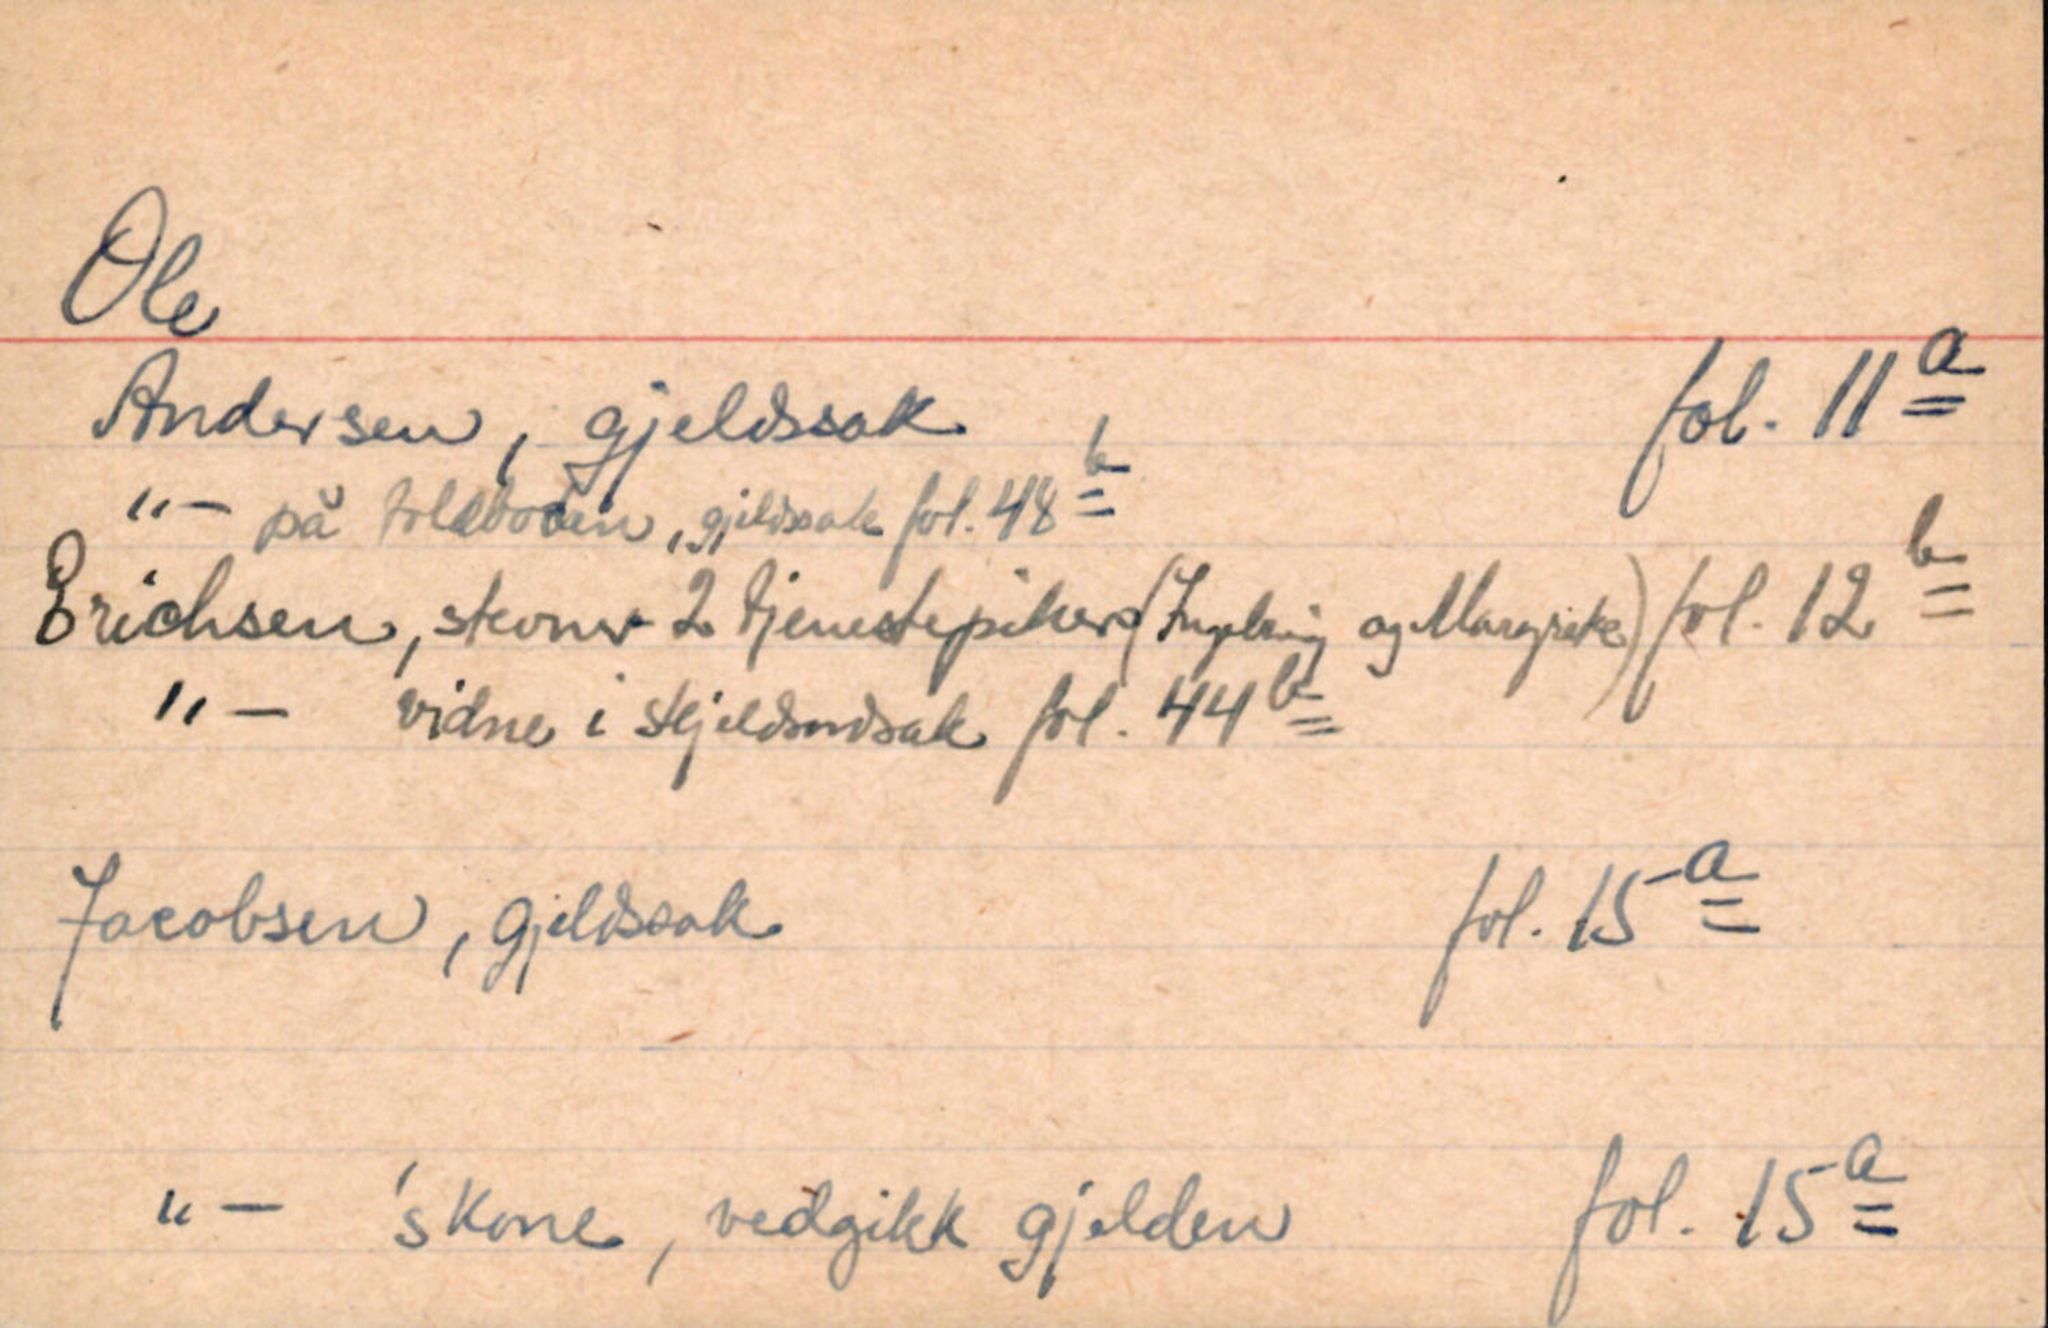 Ole
Andersen, gjeldssak fol. 11a
"— på toldboden, gjeldssak fol. 48b
Erichsen, stevner 2 tjenestepiker (Ingebrig og Margrete) fol. 12b
"— vidne i skjeldsordsak fol. 44b
Jacobsen, gjeldssak fol. 15a
"— 's kone, vedgikk gjelden fol. 15a